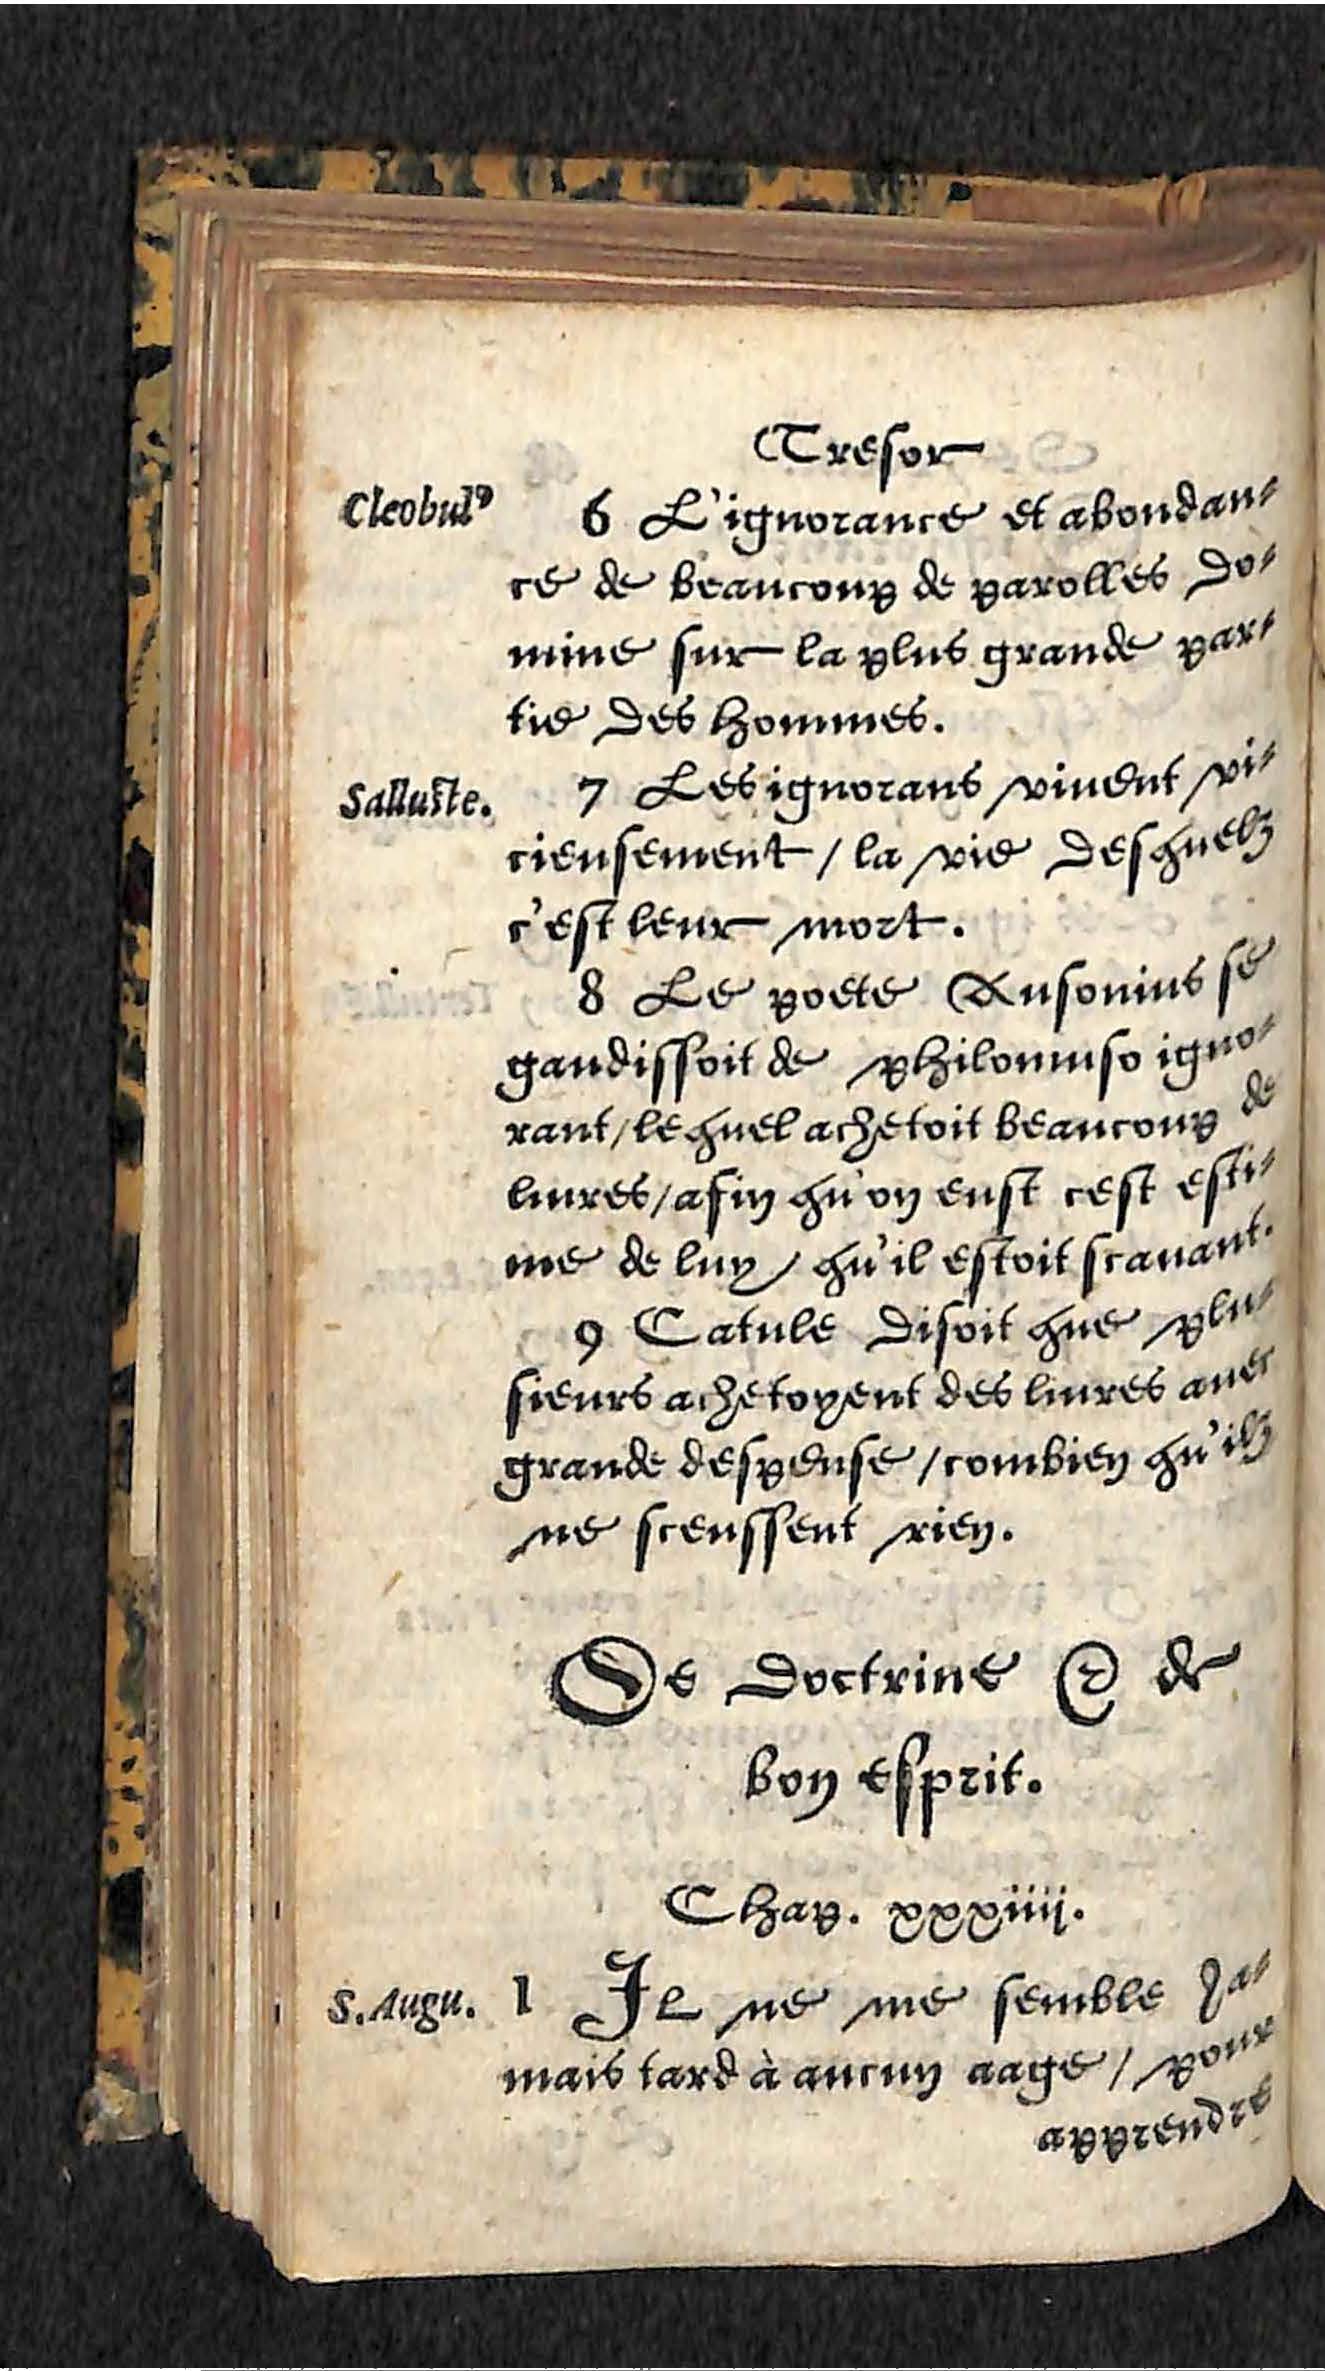 Tresor
Cleobulꝰ 6 L'ignorance et abondan-
ce de beaucoup de parolles do-
mine sur la plus grande par-
tie des hommes.
Salluste. 7 Les ignorans viuent vi-
cieusement / la vie desquelz
c'est leur mort.
8 Le poete Ausonius se
gaudissoit de philomuso igno-
rant / lequel achetoit beaucoup de
liures / afin qu'on eust cest esti-
me de luy / qu'il estoit scauant.
9 Catule disoit que plu-
sieurs achetoyent des liures auec
grande despense / combien qu'ilz
ne sceussent rien.
De doctrine & de
bon esprit.
Chap. xxxiiij.
S. Augu. 1 Il ne me semble Ja-
mais tard à aucun aage / pour
apprendre